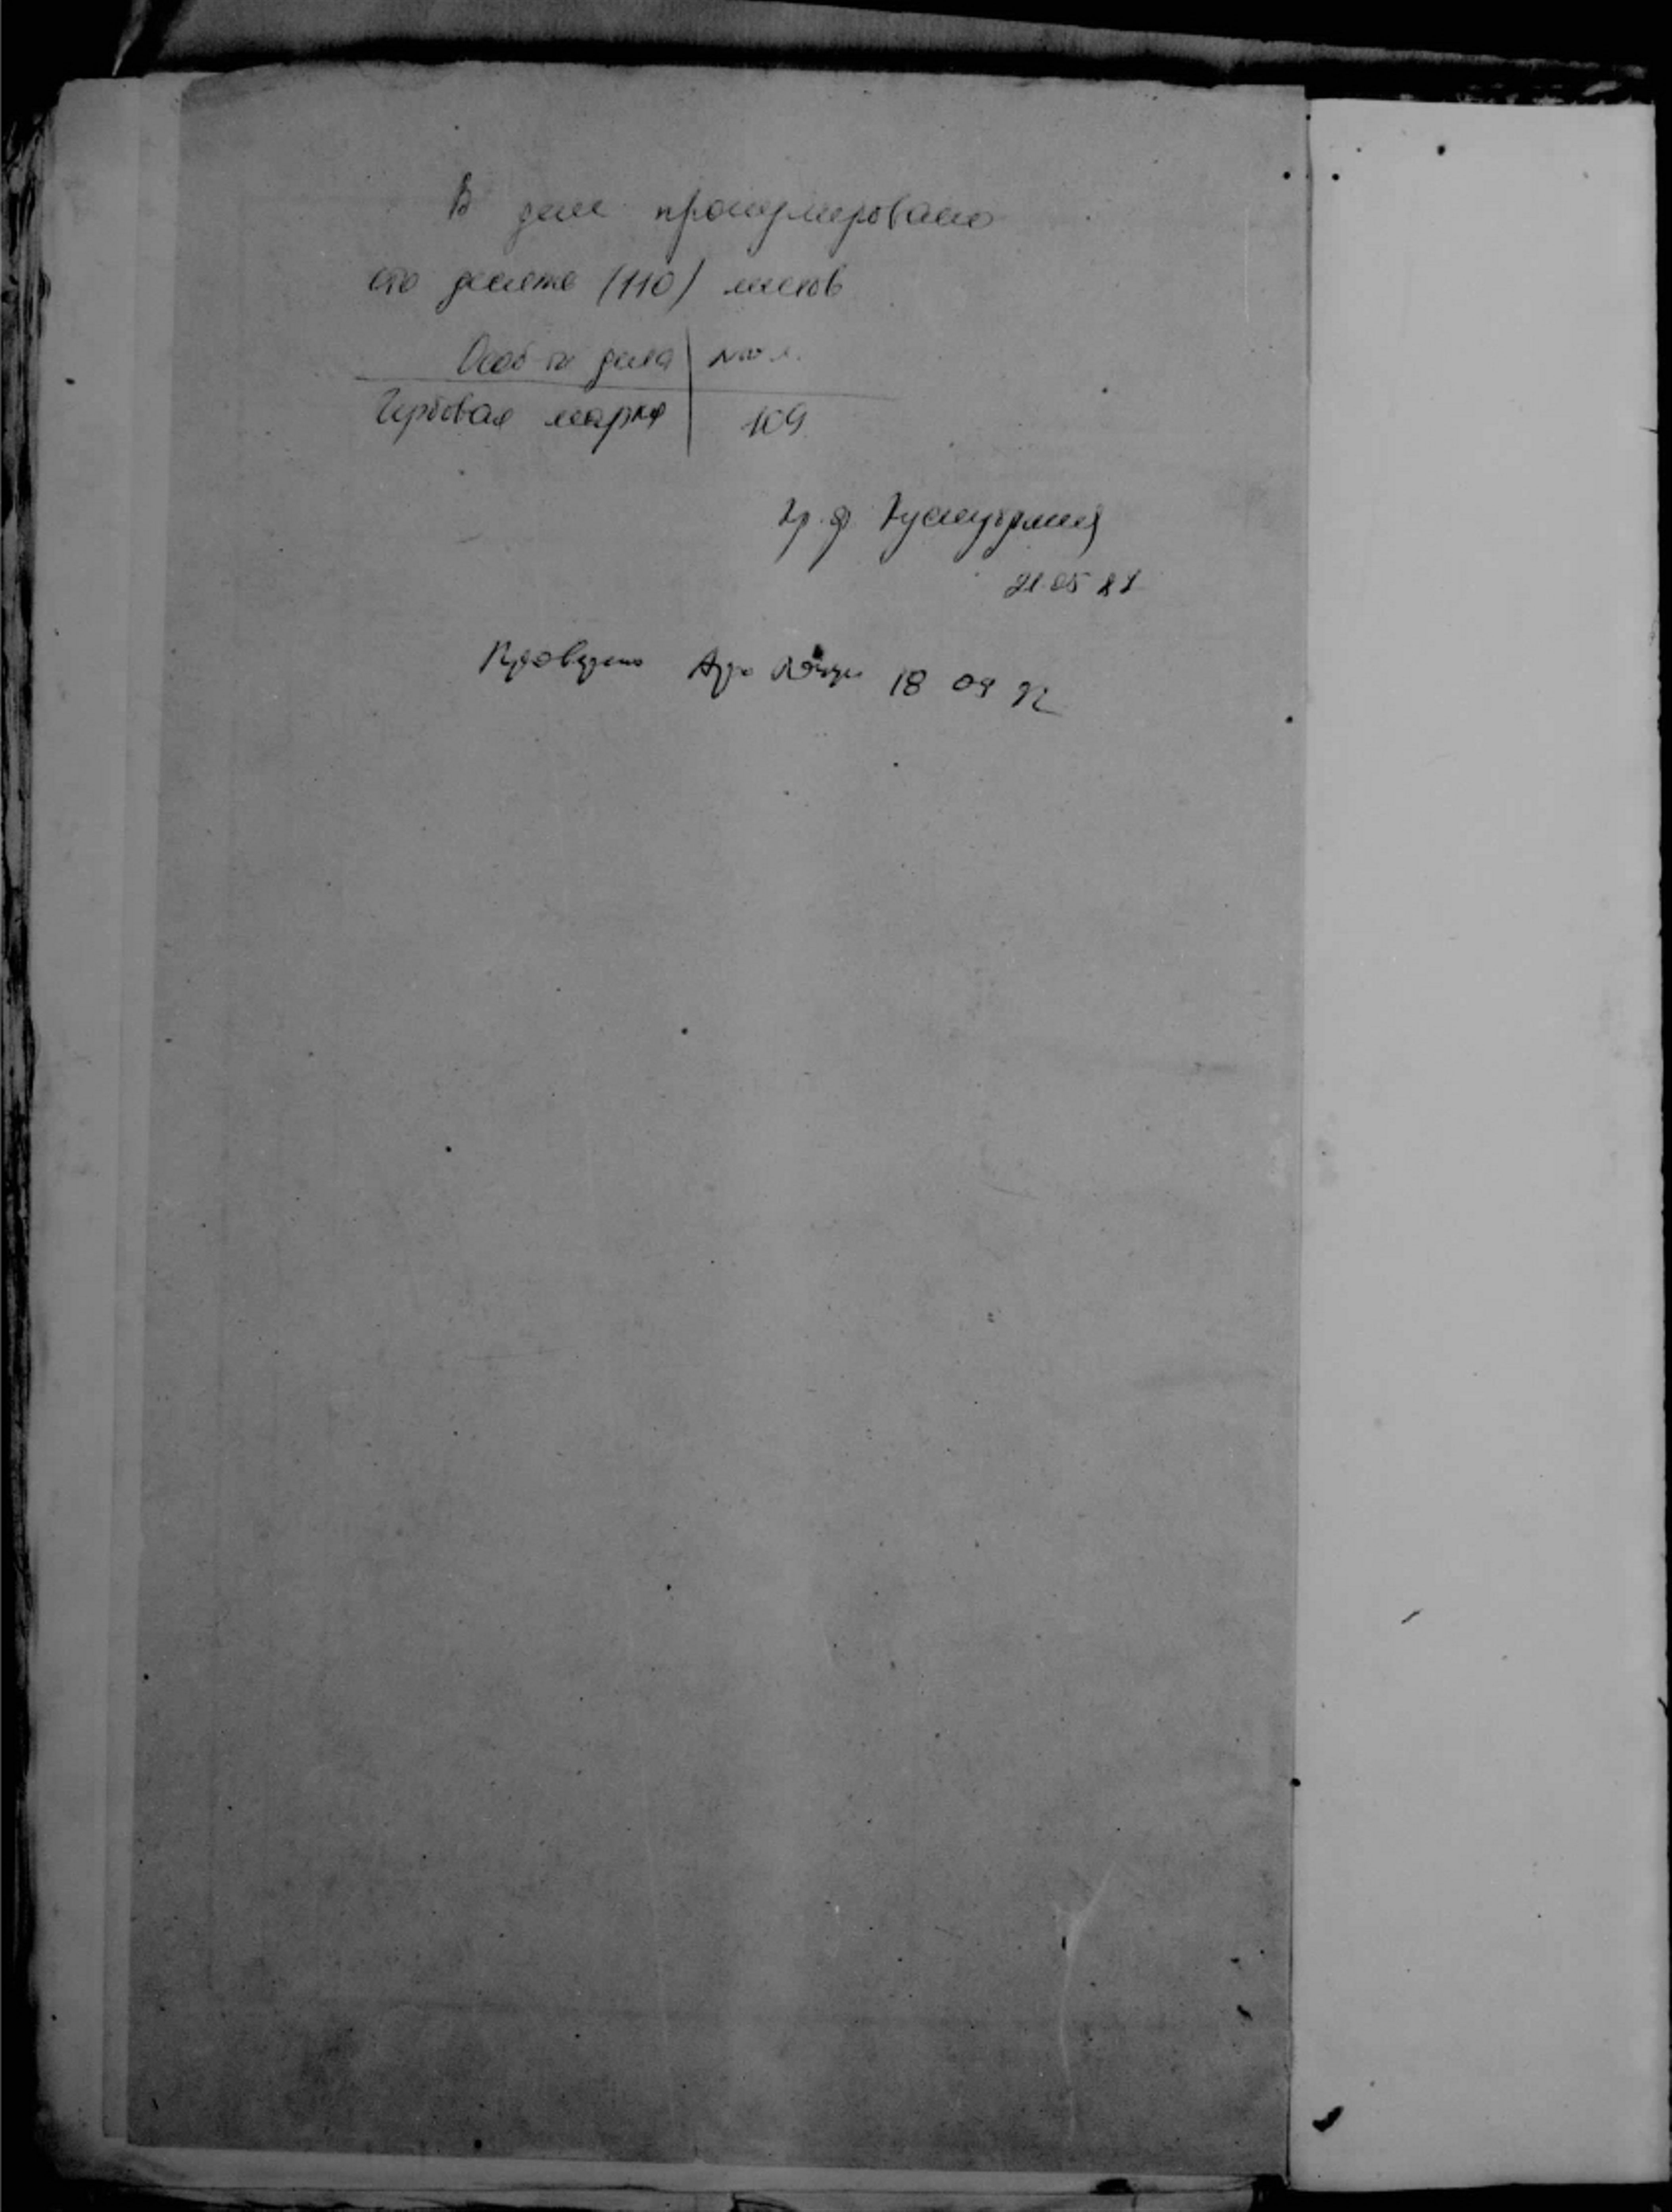 В деле пронумеровано
сто десять (110) листов
Особ-ти дела | №№ л.
Гербовая марка | 109
21.05.87
Проверено 18 09